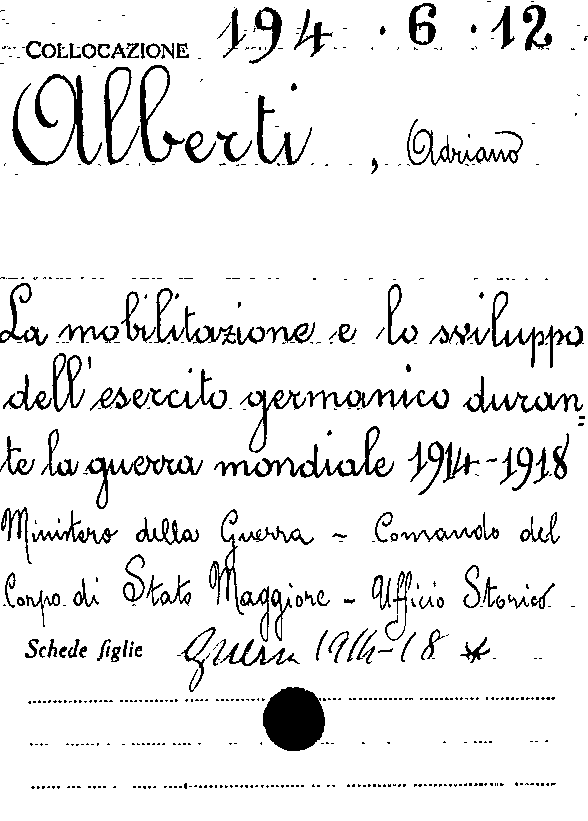 COLLOCAZIONE 194 . 6 . 12
Alberti, Adriano
La mobilitazione e lo sviluppo
dell'esercito germanico duran=
te la guerra mondiale 1914-1918
Ministero della Guerra - Comando del
Corpo di Stato Maggiore - Ufficio Storico
Schede figlie Guerra 1914-18 *